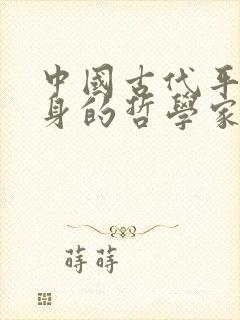 中國古代平
身的哲學家
蒔蒔